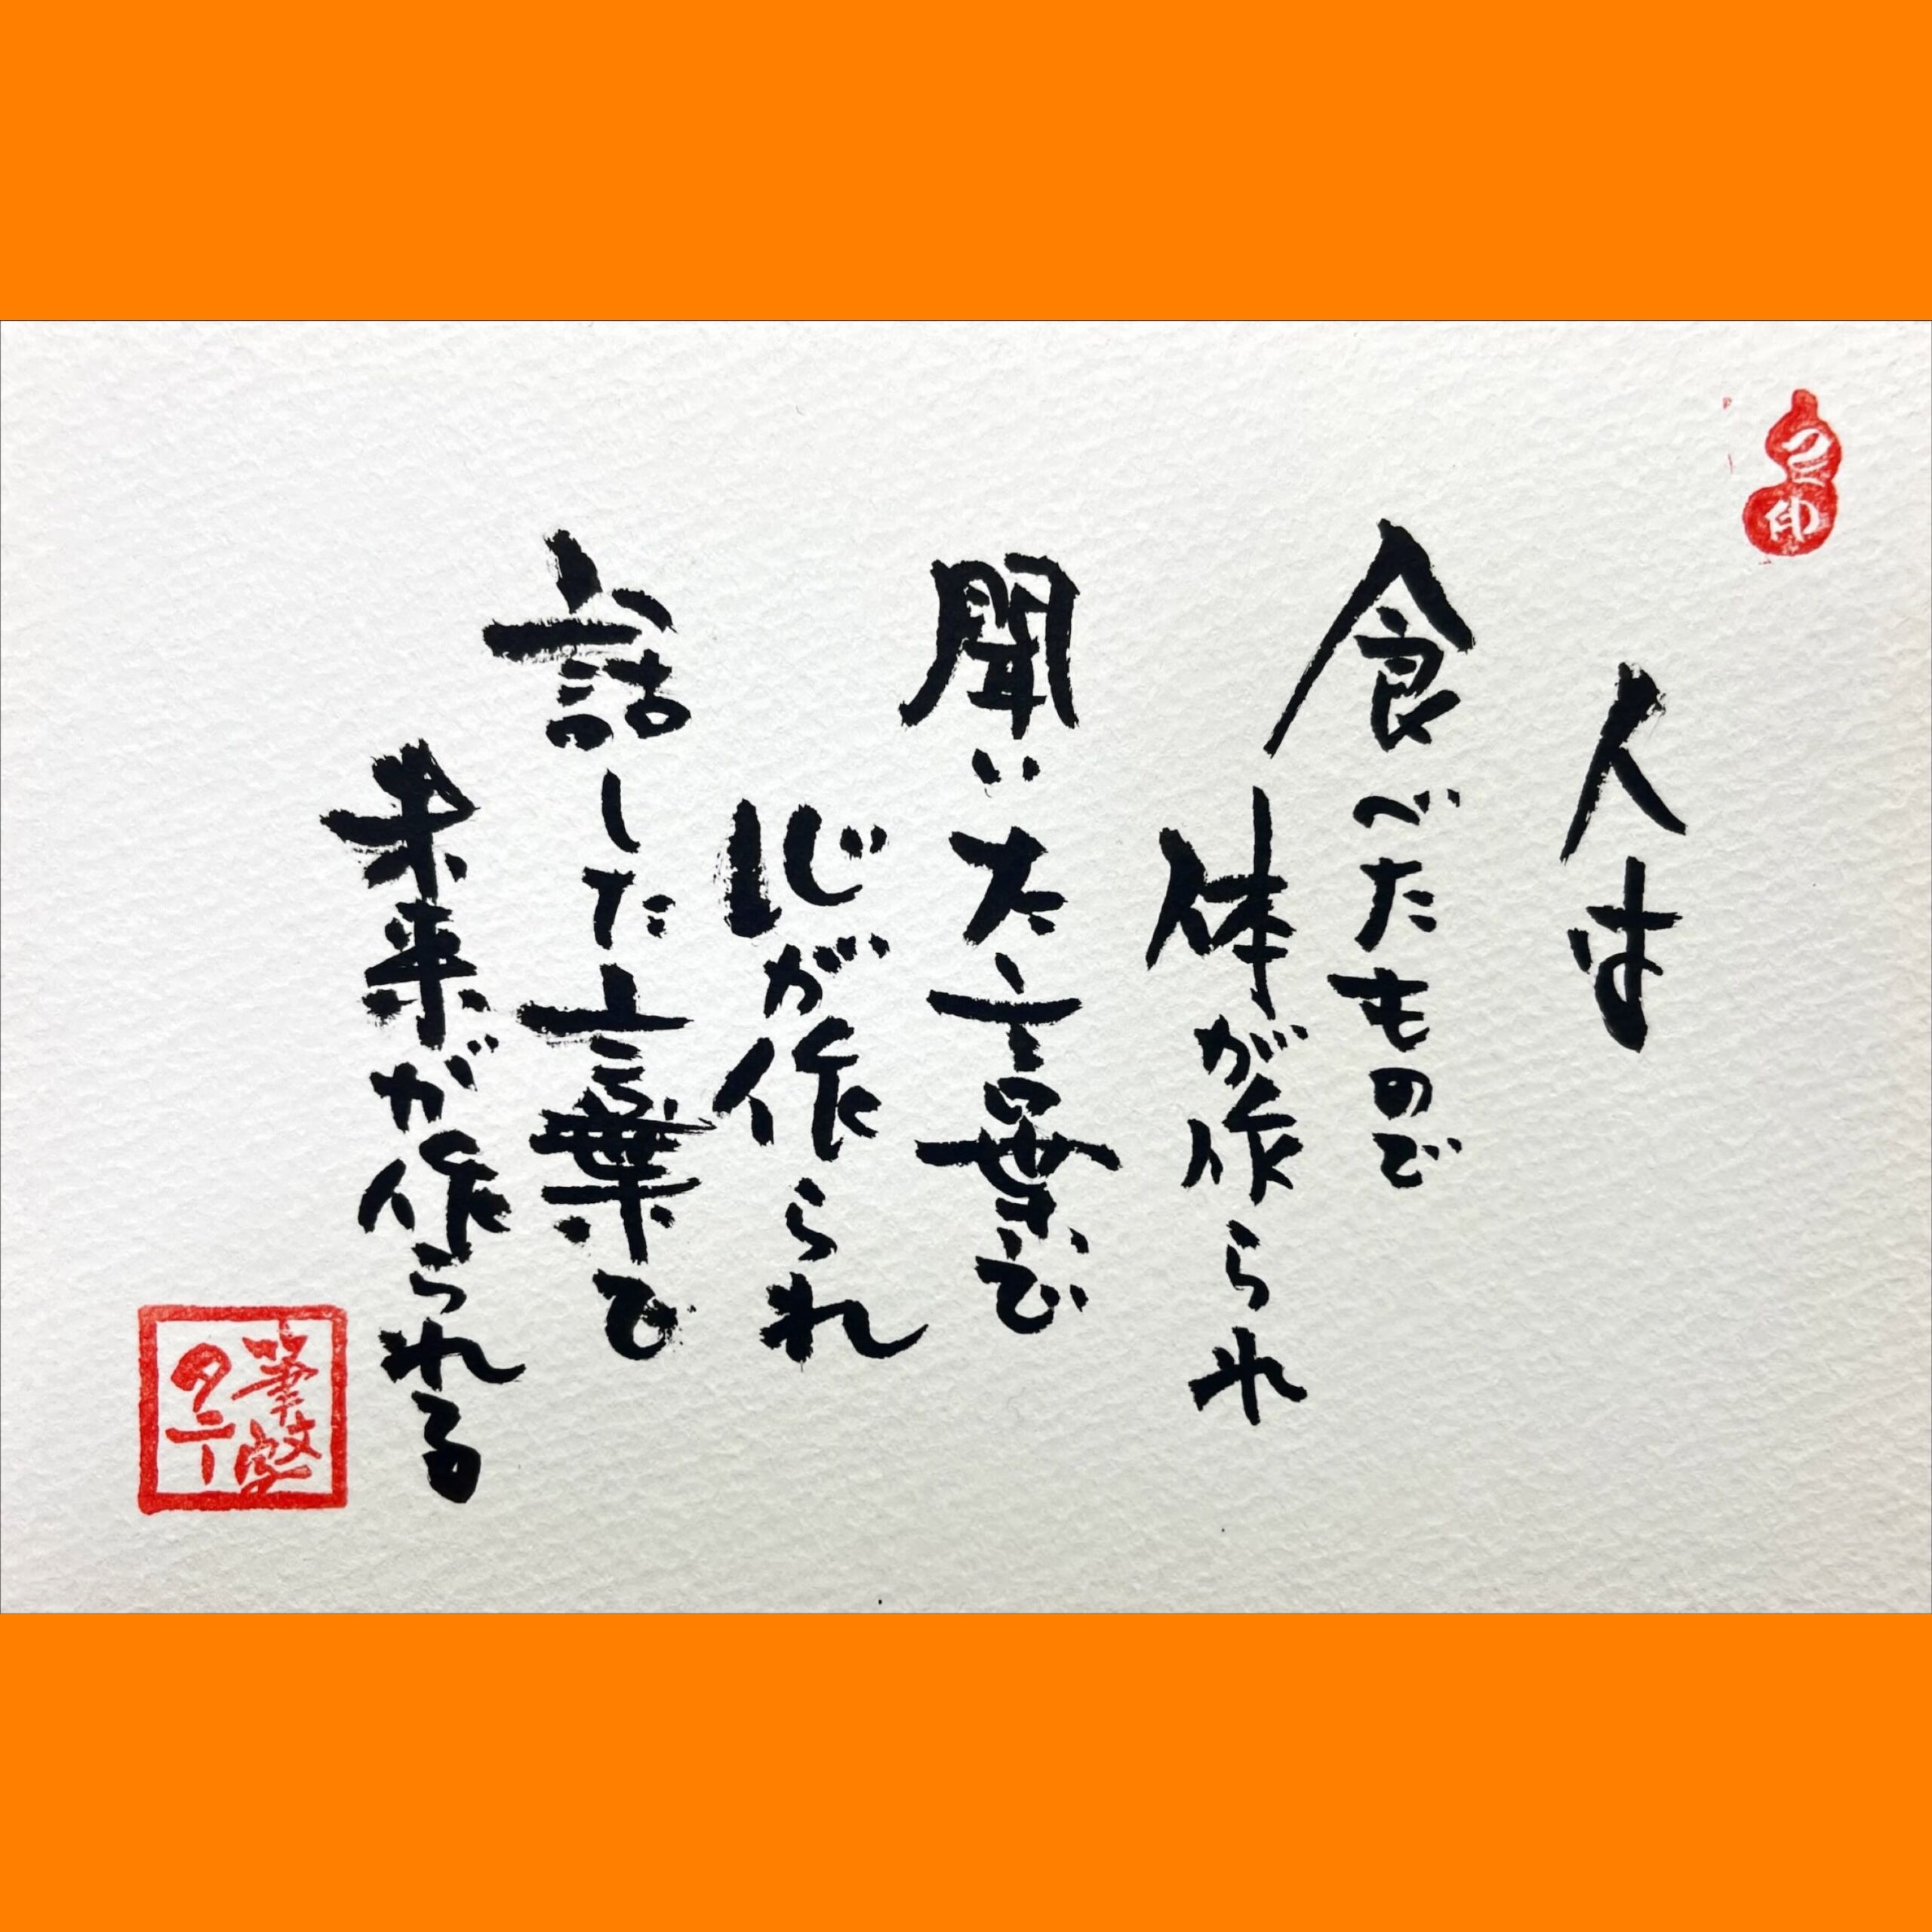 人は
食べたもので
体が作られ
聞いた言葉で
心が作られ
話した言葉で
未来が作られる
筆文字
タニー